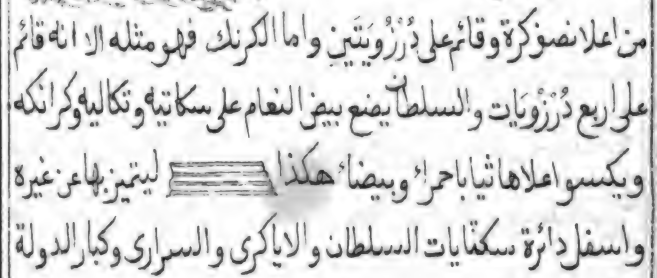 من اعلا نصف كرة وقائم على دُرْزُويَتَين واما الكرنك فهو مثله الا انه قائم
على اربع دُرْزُوَيات والسلطان يضع بيض النعام على سكاتيه وتكاليه وكرانكه
ويكسو اعلاها ثيابا حمراء وبيضاء هكذا ليتميز بها عن غيره
واسفل دائرة سكتايات السلطان والاياكرى والسرارى وكبار الدولة